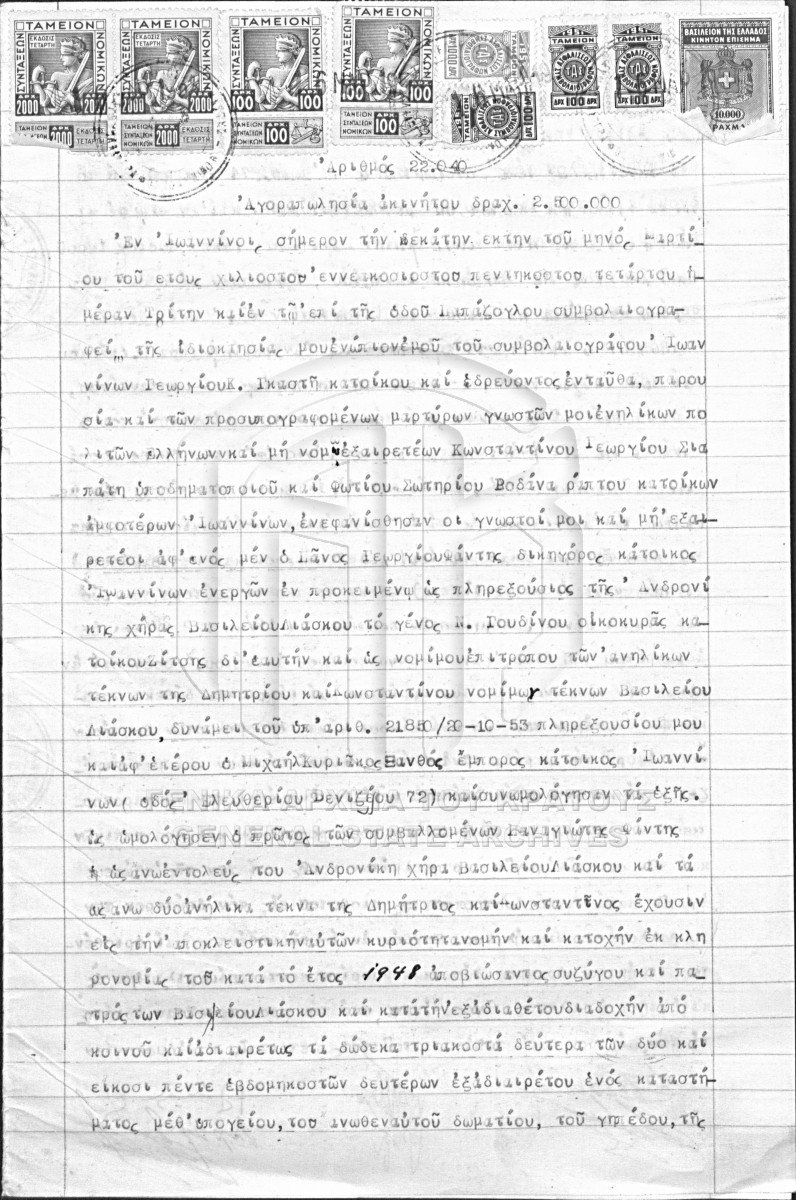 ΤΑΜΕΙΟΝ ΤΑΜΕΙΟΝ ΤΑΜΕΙΟΝ ΤΑΜΕΙΟΝ
ΣΥΝΤΑΞΕΩΝ ΝΟΜΙΚΩΝ ΣΥΝΤΑΞΕΩΝ ΝΟΜΙΚΩΝ ΣΥΝΤΑΞΕΩΝ ΝΟΜΙΚΩΝ ΣΥΝΤΑΞΕΩΝ ΝΟΜΙΚΩΝ
ΕΚΔΟΣΙΣ ΤΕΤΑΡΤΗ
2000 2000 2000 100 100 100 100
ΤΑΜΕΙΟΝ ΣΥΝΤΑΞΕΩΣ ΝΟΜΙΚΩΝ 2000 ΕΚΔΟΣΙΣ ΤΕΤΑΡΤΗ
1951 ΤΑΜΕΙΟΝ ΔΡΧ 100 ΔΡΧ
ΒΑΣΙΛΕΙΟΝ ΤΗΣ ΕΛΛΑΔΟΣ
ΚΙΝΗΤΟΝ ΕΠΙΣΗΜΑ
10.000
Ἀριθμός 22.040
Ἀγοραπωλησία ἀκινήτου δραχ. 2.500.000
Ἐν Ἰωαννίνοις σήμερον τήν δεκάτην εκτην τοῦ μηνός Μαρτί-
ου τοῦ ετους χιλιοστου ἐννεακοσιοστου πεντηκοστου τετάρτου ἡ-
μέραν Τρίτην καί ἐν τῷ ἐπί τῆς ὁδοῦ Σαπάζογλου συμβολαιογρα-
φεί της ἰδιοκτησίας μου ἐνώπιον ἐμοῦ τοῦ συμβολαιογράφου Ἰωαν
νίνων ΓεωργίουΚ. Γκαστῆ κατοίκου καί ἑδρεύοντος ἐνταῦθα, παρου
σία καί τῶν προσυπογραφομένων μαρτύρων γνωστῶν μοι ἐνηλίκων πο
λιτῶν Ἑλλήνων καί μή νόμῳ ἐξαιρετέων Κωνσταντίνου Γεωργίου Σια
πάτη ὑποδηματοποιοῦ καί Φωτίου Σωτηρίου Βοδίνα ράπτου κατοίκων
ἀμφοτέρων Ἰωαννίνων, ἐνεφανίσθησαν οι γνωστοί μοι καί μή ἐξαι-
ρετέοι ἀφ'ἑνός μέν ὁ Πᾶνος ΓεωργίουΦάντης δικηγόρος κάτοικος
Ἰωαννίνων ἐνεργῶν ἐν προκειμένῳ ὡς πληρεξούσιος τῆς Ἀνδρονί
κης χήρας ΒασιλείουΛιάσκου τό γένος Ν. Γουδίνου οἰκοκυρᾶς κα-
τοίκουΖίτσης δι'ἑαυτήν καί ὡς νομίμου ἐπιτρόπου τῶν ἀνηλίκων
τέκνων της Δημητρίου καίΚωνσταντίνου νομίμων τέκνων Βασιλείου
Λιάσκου, δυνάμει τοῦ ὑπ'ἀριθ. 21850/20-10-53 πληρεξουσίου μου
καί ἀφ'ἑτέρου ὁ ΜιχαήλΚυριᾶκος Ξανθός ἔμπορος κάτοικος Ἰωαννί
νων( ὁδός Ἐλευθερίου Βενιζέλου 72) καί συνωμολόγησαν τά ἑξῆς.
Ὡς ὡμολόγησεν ὁ πρῶτος τῶν συμβαλλομένων Παναγιώτης Φάντης
ἡ ὡς ανω ἐντολεύς του Ἀνδρονίκη χήρα ΒασιλείουΛιάσκου καί τά
ως ανω δύο ἀνήλικα τέκνα της Δημήτριος καίΚωνσταντῖνος ἔχουσιν
εἰς τήν ἀποκλειστικήν αὑτῶν κυριότητα νομήν καί κατοχήν ἐκ κλη
ρονομίας τοῦ κατά τό ἔτος 1948 ἀποβιώσαντος συζύγου καί πα-
τρός των ΒασιλείουΛιάσκου καί κατά τήν ἐξ ἀδιαθέτου διαδοχήν ἀπό
κοινοῦ καί ἀδιαιρέτως τά δώδεκα τριακοστά δεύτερα τῶν δύο καί
εἰκοσι πέντε ἑβδομηκοστῶν δευτέρων ἐξ ἀδιαιρέτου ἑνός καταστή-
ματος μεθ'ὑπογείου, του ανωθεν αὐτοῦ δωματίου, τοῦ γηπέδου, τῆς
ΓΕΝΙΚΑ ΑΡΧΕΙΑ ΤΟΥ ΚΡΑΤΟΥΣ
GENERAL STATE ARCHIVES